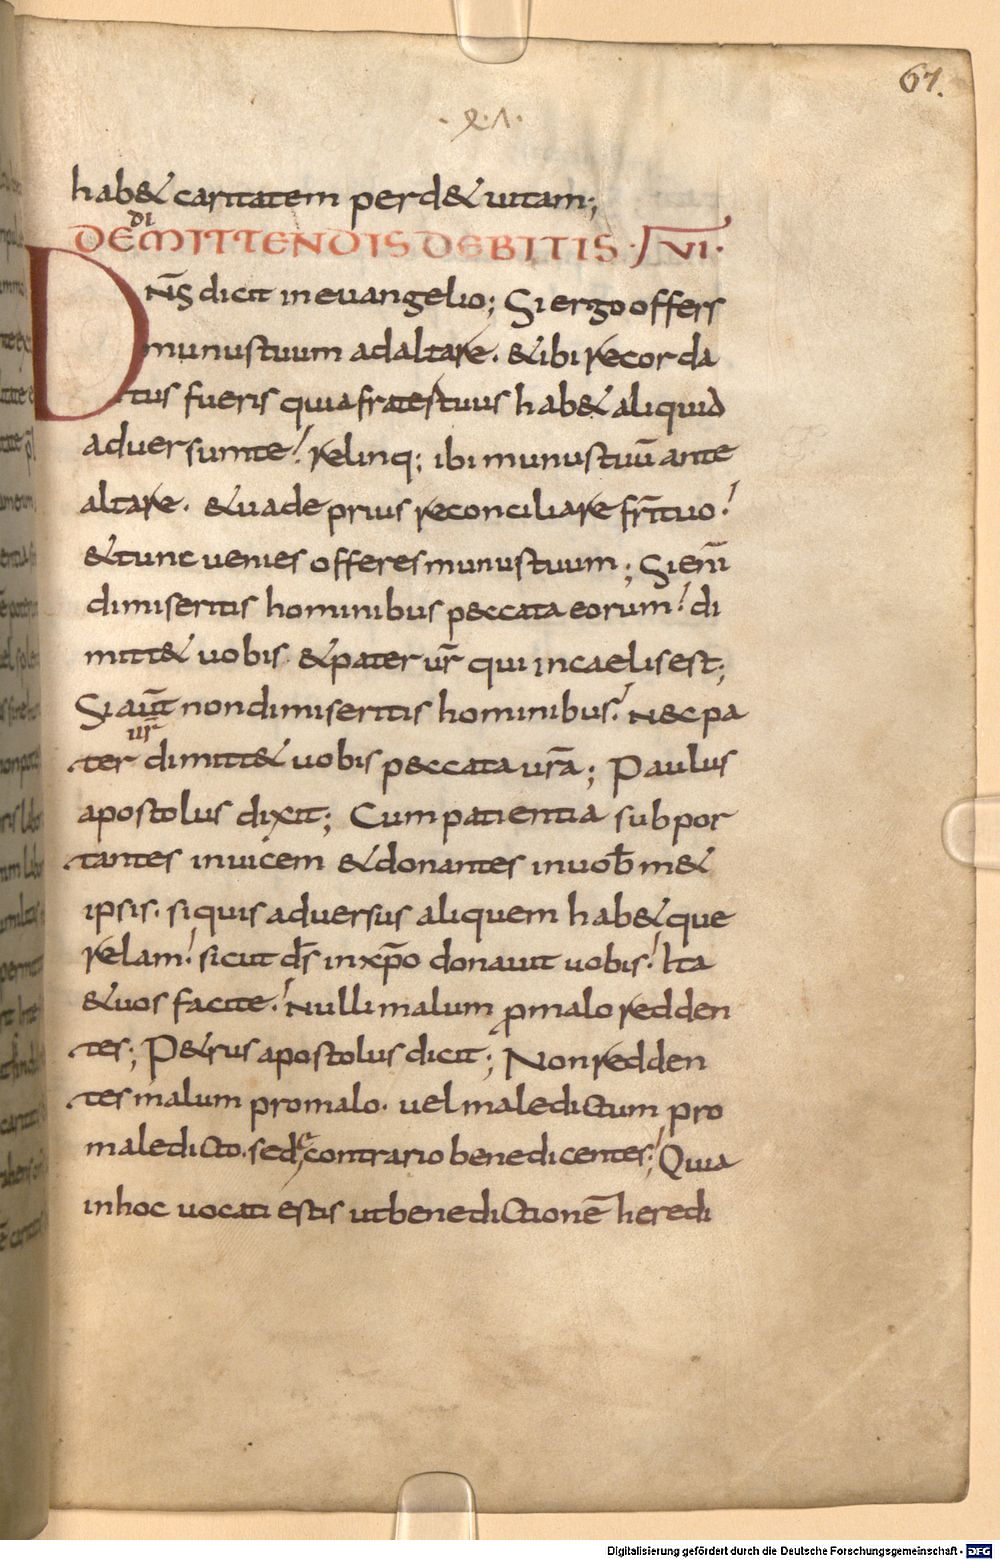 67.
hab& caritatem perd& uitam;
di
DE MITTENDIS DEBITIS · VI ·
DN̄S dicit in euangelio; Si ergo offers
munus tuum ad altare . & ibi recorda
tus fueris quia frater tuus hab& aliquid
aduersum te! relinq; ibi munus tuū ante
altare . & uade prius reconciliare fr̄i tuo!
& tunc uenies offeres munus tuum ; Si enī
dimiseritis hominibus peccata eorum! di
mitt& uobis & pater ur̄ qui in caelis est;
Si aut̄ non dimiseritis hominibus! N&c pa
ur̄
ter dimitt& uobis peccata ur̄a ; Paulus
apostolus dixit ; Cum patientia subpor
tantes inuicem & donantes in uob̄ m&
ipsis . si quis aduersus aliquem hab& que
relam! sicut d̄s in xp̄o donauit uobis! Ita
& uos facite! Nulli malum ꝓ malo redden
tes ; P&rus apostolus dicit ; Non redden
tes malum pro malo . uel maledictum pro
maledicto . sed e contrario benedicentes! Quia
in hoc uocati estis ut benedictionē heredi
Digitalisierung gefördert durch die Deutsche Forschungsgemeinschaft - DFG